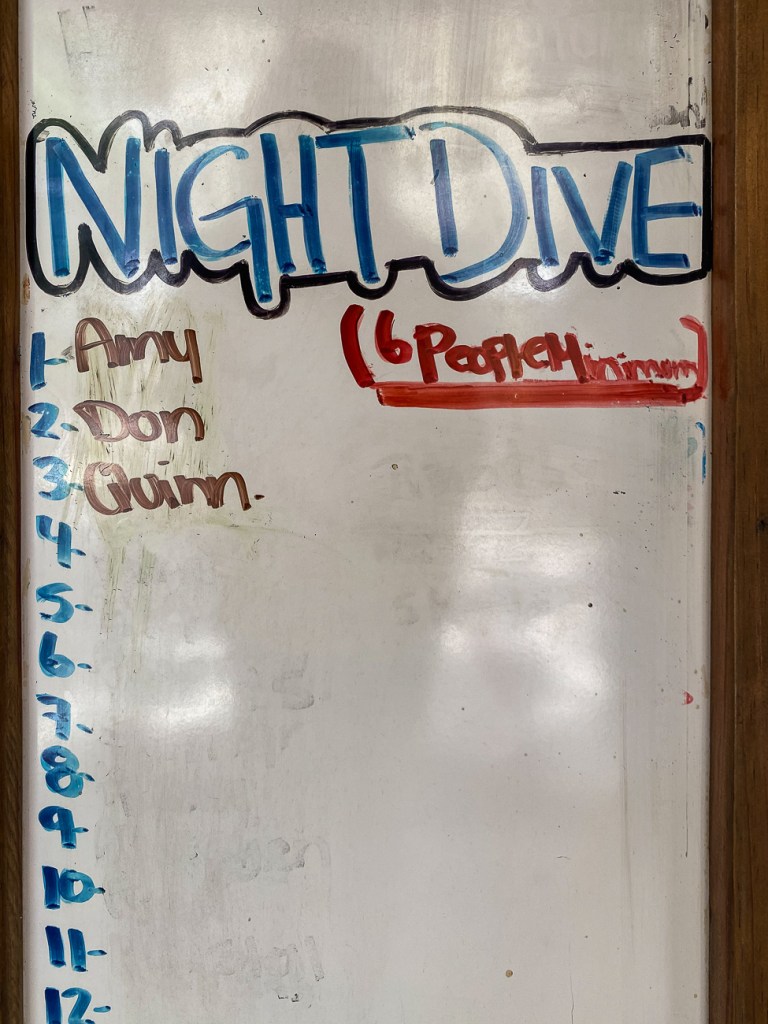 NIGHT DIVE
(6 PEOPLE Minimum)
1- Amy
2- Don
3- Quinn.
4-
5-
6-
7-
8-
9-
10-
11-
12-